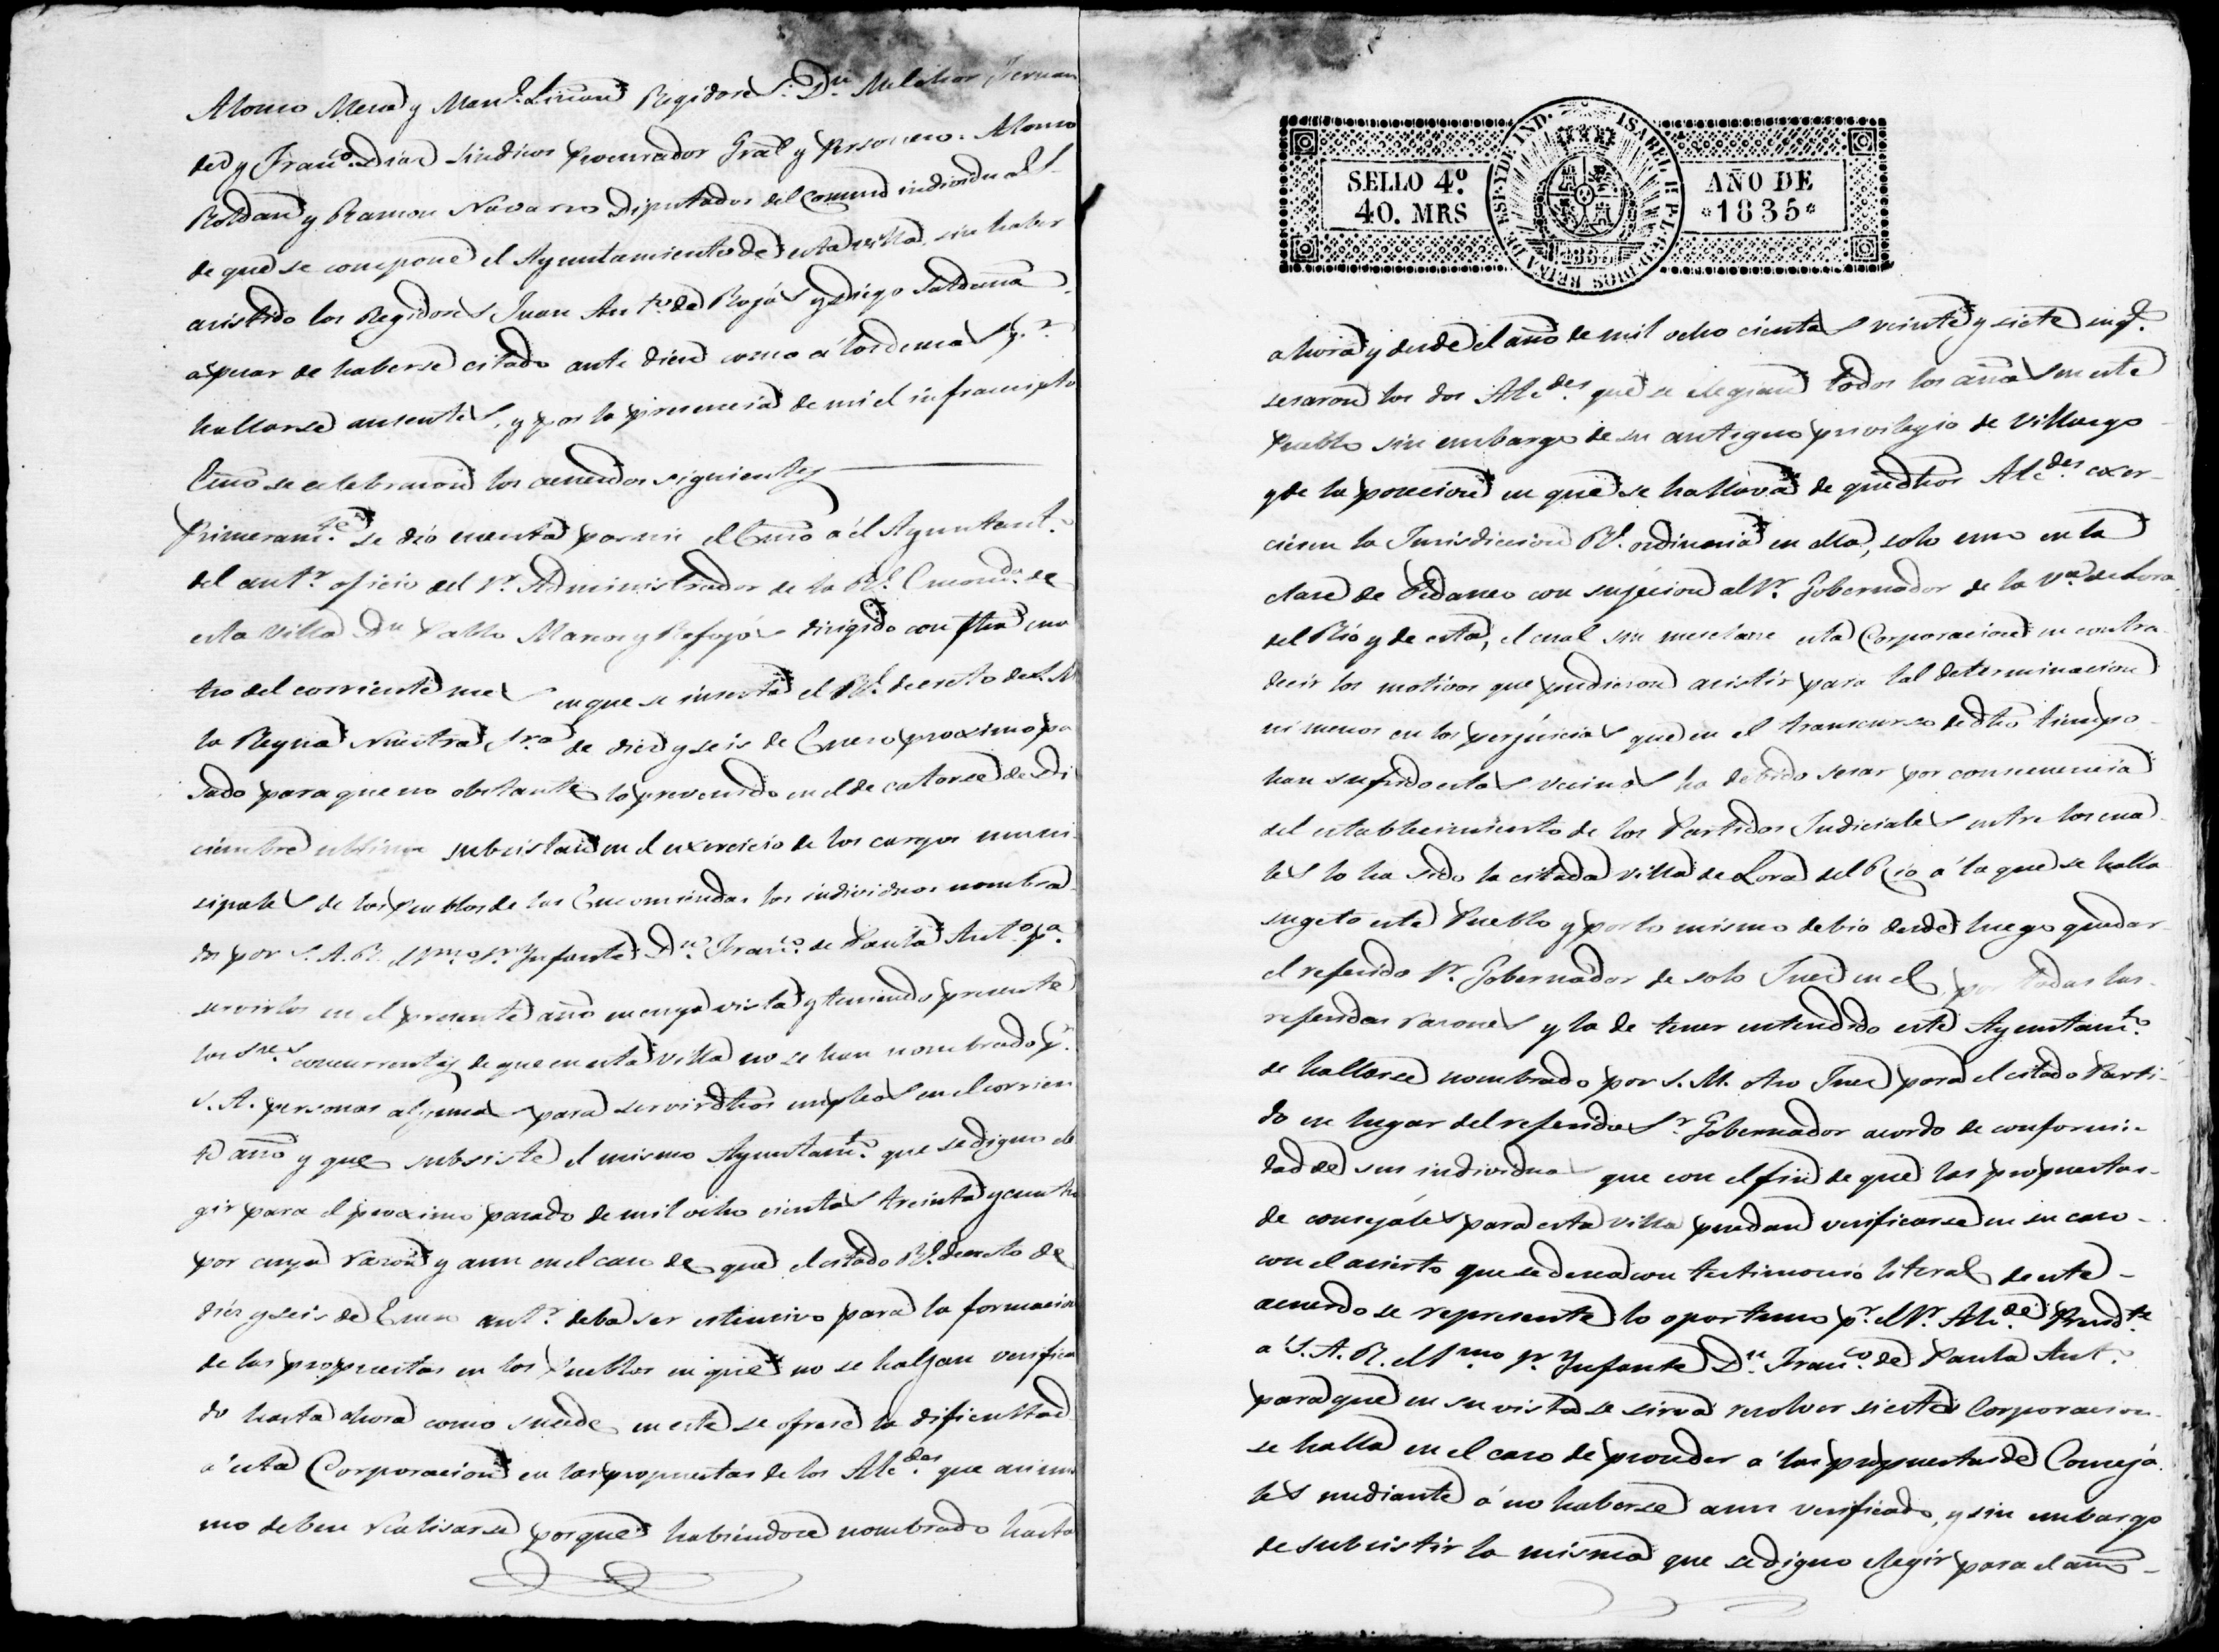 Alonso Mena y Man.l Liñan Regidores: D.n Melchor Fernan
dez y Fran.co Diaz sindicos Procurador Gral y Personero. Alonso
Roldan y Ramon Navarro Diputados del Comun individuos
de que se compone el Ayuntamiento de esta villa, sin haber
asistido los Regidores Juan Ant.o de Rojas y Diego Saldaña
apesar de haberse citado ante diem como á los demas p.r
hallarse ausentes, y por la presencia de mi el infraescripto
Esno se celebraron los acuerdos siguientes
Primeram.te se dió cuenta por mi el Esno á el Ayuntam.to
del ant.r oficio del Sr. Administrador de la Rl. Encom.da de
esta Villa Dn Pablo Marcos y Refojos dirigido con fha cua
tro del corriente mes en que se inserta el Rl. decreto de S. M.
la Reyna Nuestra Sra de diez y seis de Enero proximo pa
sado para que no obstante lo prevenido en el de catorse de Di
ciembre ultimo subsistan en el exercicio de los cargos muni
sipales de los Pueblos de las Encomiendas los individuos nombra
dos por S. A. R. el Smo Sr Infante Dn Fran.co de Paula Ant.o pa
servirlos en el presente año en cuya vista y teniendo presente
los Sres concurrentes de que en esta villa no se han nombrado p.r
S. A. personas algunas para servir dhos empleos en el corrien
te año y que subsiste el mismo Ayuntam.to que se digno ele
gir para el proximo pasado de mil ocho cientos treinta y cuatro
por cuya razon y aun en el caso de que el citado Rl. decreto de
diez y seis de Enero ant.r deba ser estensivo para la formacion
de las propuestas en los Pueblos en que no se hallan verifica
do hasta ahora como sucede en este se ofrese la dificultad
á esta Corporacion en las propuestas de los Alc.des que asimis
mo deben realisarse porque habiendose nombrado hasta
SELLO 4º 40. MRS
ISABEL II P. L. G. D. DIOS REINA DE ESP. Y DE IND.
1835
AÑO DE *1835*
ahora y desde el año de mil ocho cientos veinte y siete
sesaron los dos Alc.des que se elegian todos los años en este
Pueblo sin embargo de su antiguo privilegio de Villasgo
y de la posecion en que se hallava de que dhos Alc.des exer-
ciesen la Jurisdiccion Rl. ordinaria en ella, solo uno en la
clase de Pedaneo con sujecion al Sr. Gobernador de la Va. de Lora
del Rio y de esta, el cual sin mesclarse esta Corporacion en contra
decir los motivos que pudieron asistir para tal determinacion
ni menos en los perjuicios que en el transcurso de dho tiempo
han sufrido estos vecinos ha debido sesar por consecuencia
del establecimiento de los Partidos Judiciales entre los cua
les lo ha sido la citada villa de Lora del Rio á la que se halla
sugeto este Pueblo y por lo mismo debio desde luego quedar
el referido Sr. Gobernador de solo Juez en el, por todas las
referidas rasones y la de tener entendido este Ayuntam.to
de hallarse nombrado por S. M. otro Juez para el citado Parti-
do en lugar del referido Sr Gobernador acordo de conformi-
dad de sus individuos que con el fin de que las propuestas
de consejales para esta villa puedan verificarse en su caso
con el acierto que se desea con testimonio literal de este
acuerdo se represente lo oportuno p.r el Sr. Alc.de Presid.te
a S. A. R. el Smo Sr. Infante Dn. Fran.co de Paula Ant.o
para que en su vista se sirva resolver si esta Corporacion
se halla en el caso de proceder á las propuestas de Conseja
les mediante á no haberse aun verificado, y sin embargo
de subsistir la misma que se digno elegir para el año